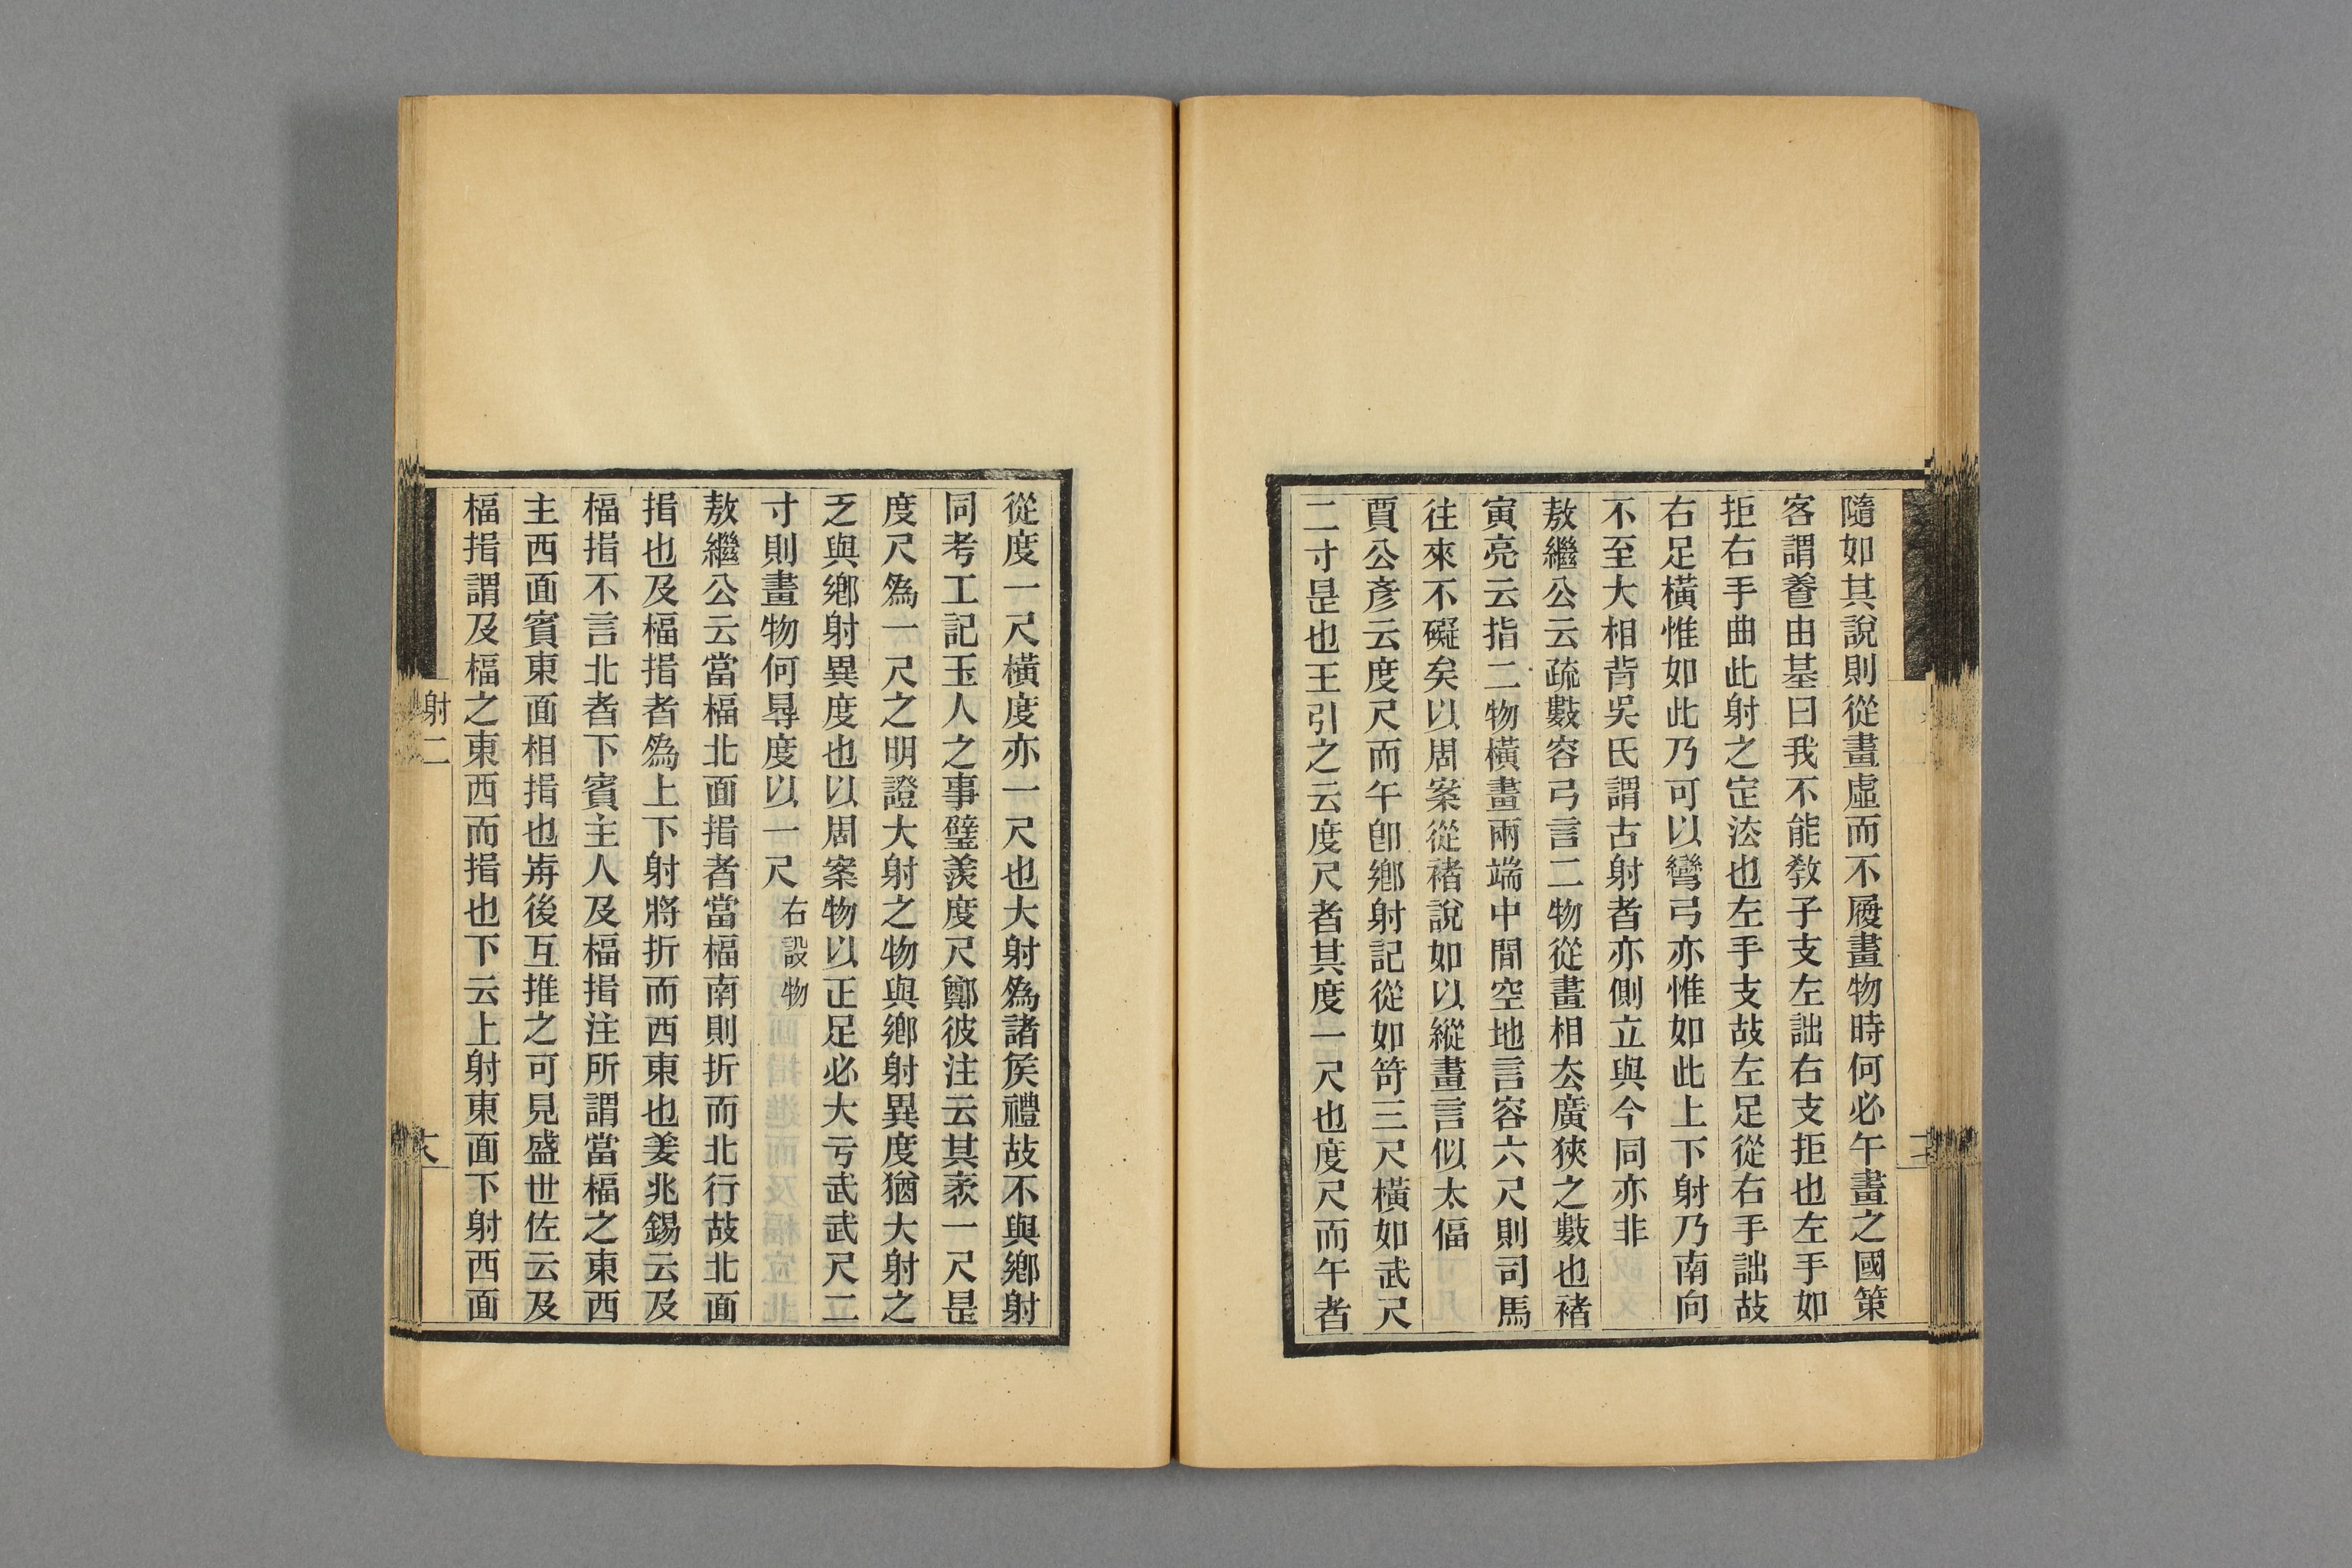 隨如其說則從畫虛而不履畫物時何必午畫之國策
客謂養由基曰我不能敎子支左詘右支拒也左手如
拒右手曲此射之定法也左手支故左足從右手詘故
右足橫惟如此乃可以彎弓亦惟如此上下射乃南向
不至大相背吳氏謂古射者亦側立與今同亦非
敖繼公云疏數容弓言二物從畫相去廣狹之數也褚
寅亮云指二物橫畫兩端中閒空地言容六尺則司馬
往來不礙矣以周案從褚說如以縱畫言似太偪
賈公彥云度尺而午卽鄉射記從如笴三尺橫如武尺
二寸是也王引之云度尺者其度一尺也度尺而午者
從度一尺橫度亦一尺也大射爲諸矦禮故不與鄉射
同考工記玉人之事璧羨度尺鄭彼注云其袤一尺是
度尺爲一尺之明證大射之物與鄉射異度猶大射之
乏與鄉射異度也以周案物以正足必大亏武武尺二
寸則畫物何得度以一尺 右設物
敖繼公云當楅北面揖者當楅南則折而北行故北面
揖也及楅揖者爲上下射將折而西東也姜兆錫云及
楅揖不言北者下賓主人及楅揖注所謂當楅之東西
主西面賓東面相揖也歬後互推之可見盛世佐云及
楅揖謂及楅之東西而揖也下云上射東面下射西面
射二